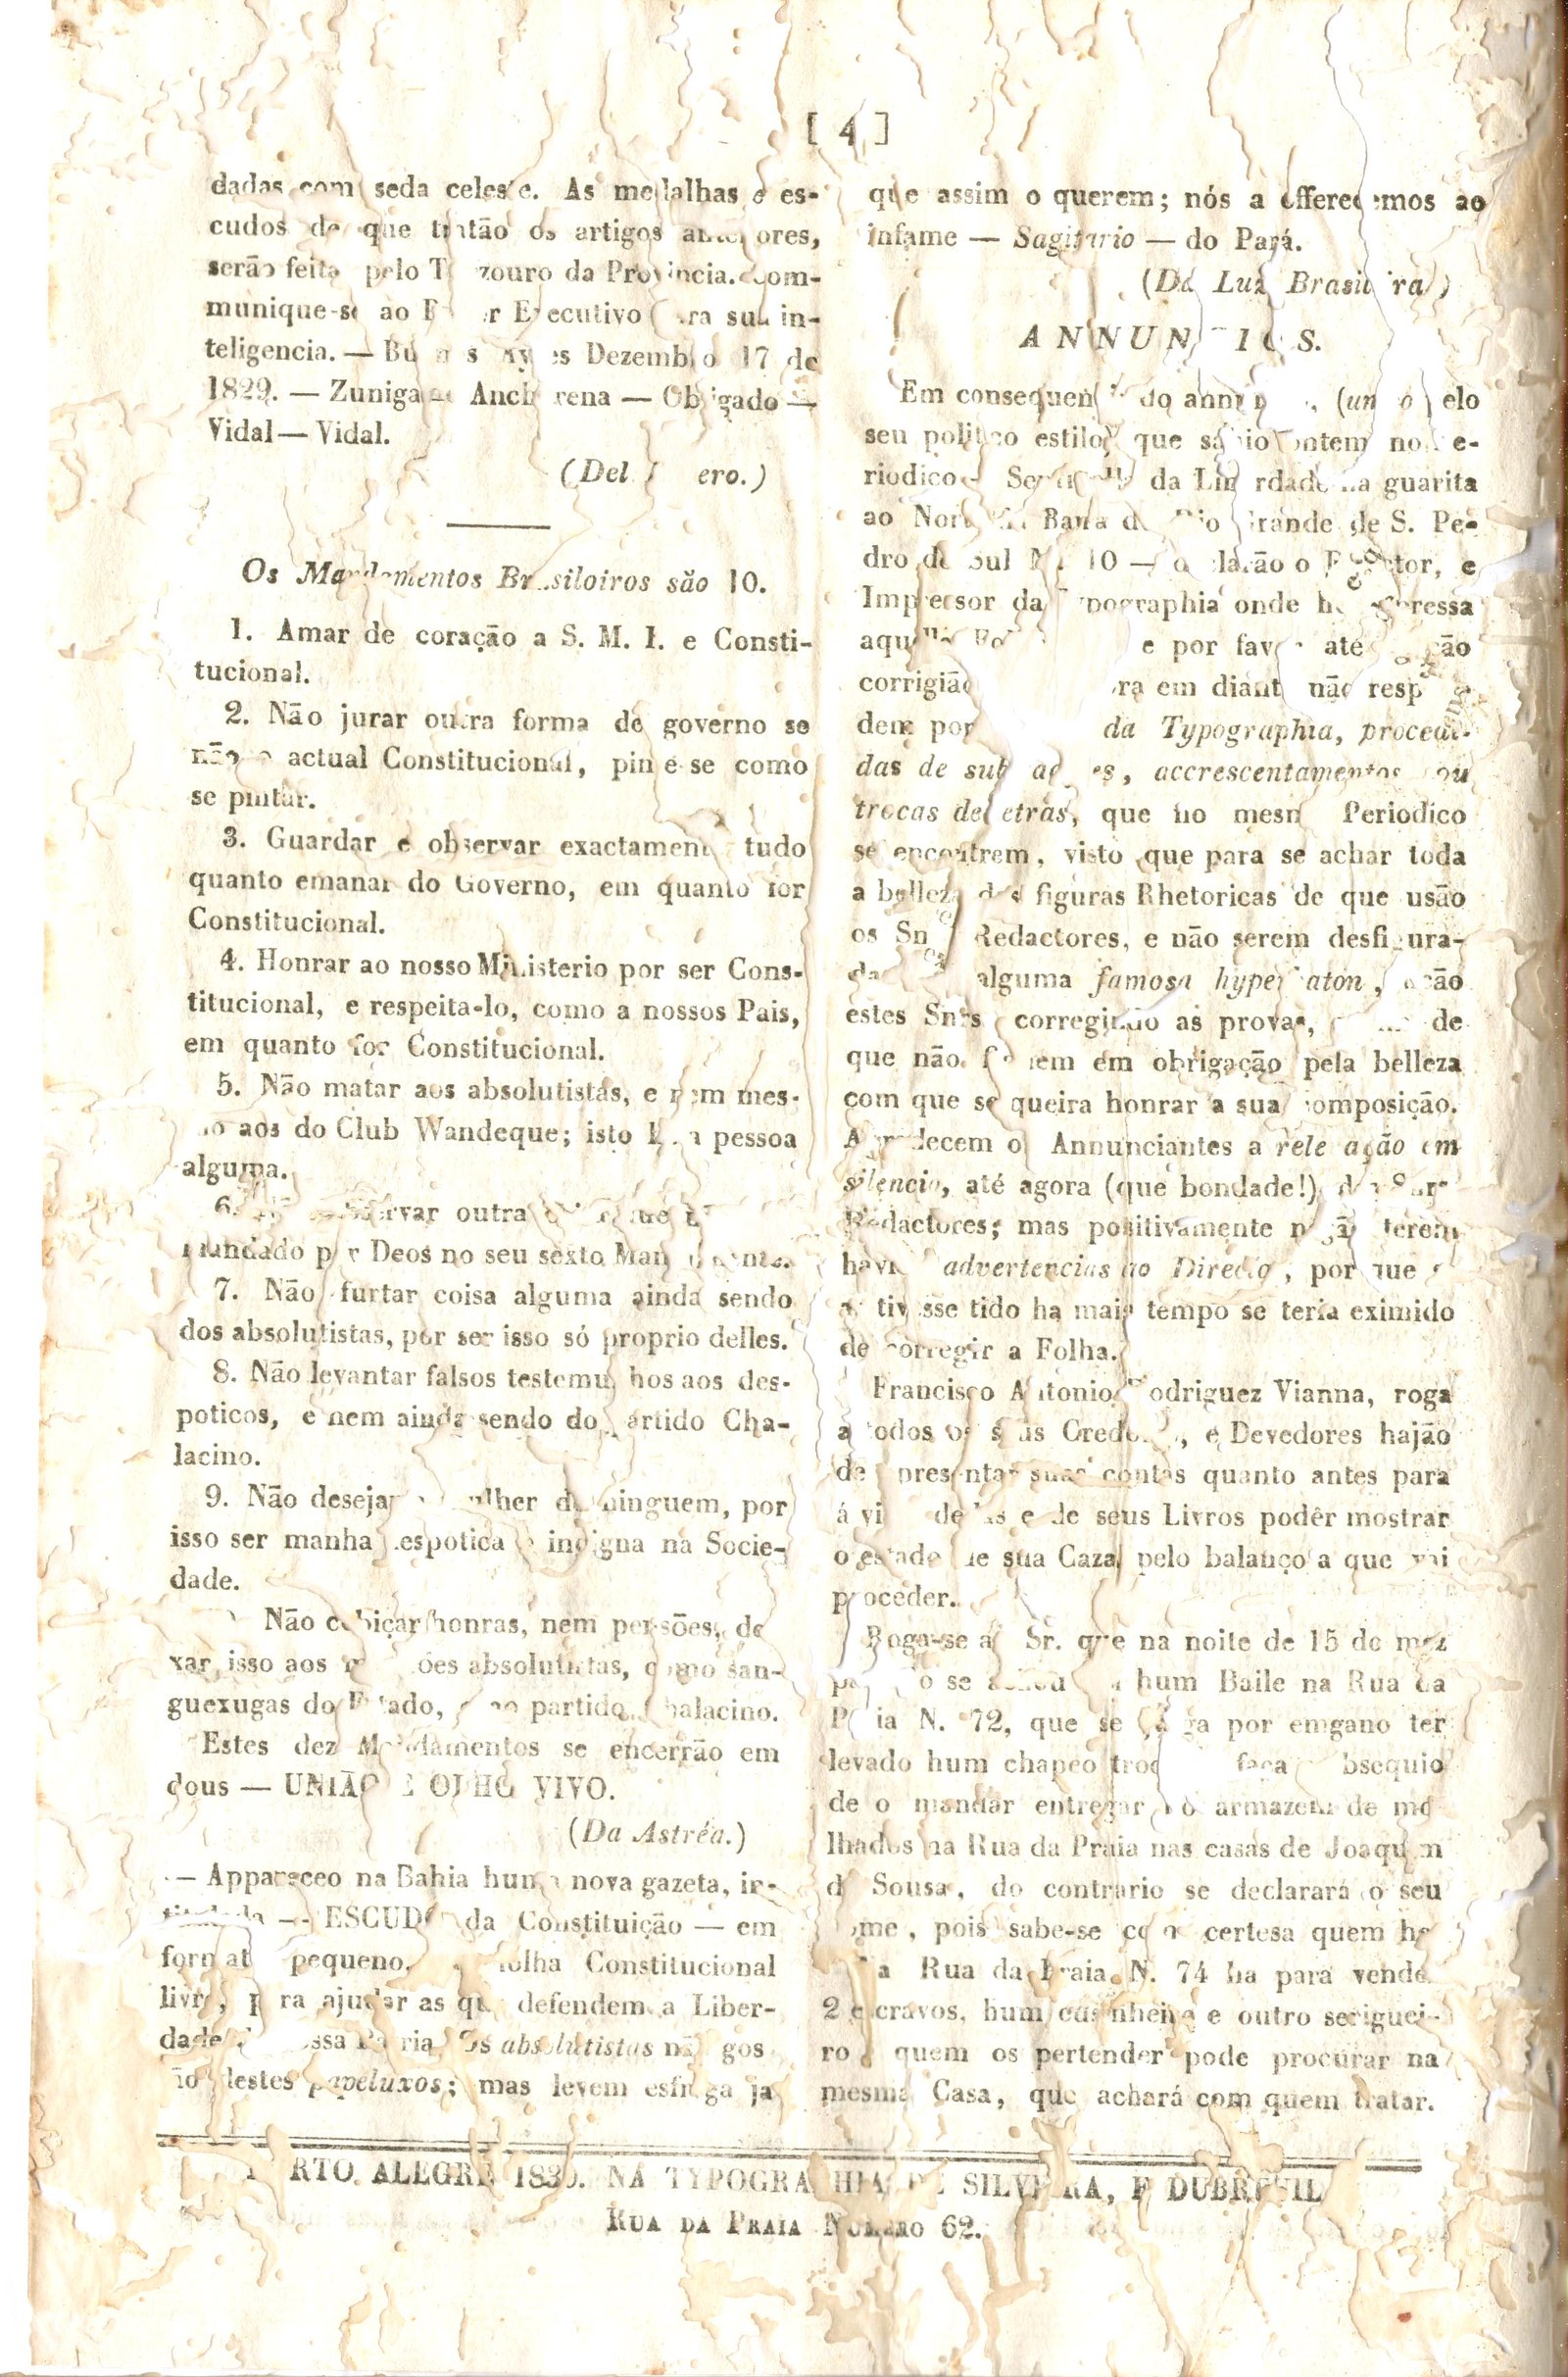 [ 4 ]
dadas com seda celeste. As medalhas e es-
cudos de que tratão os artigos anteriores,
serão feita pelo Thezouro da Provincia. Com-
munique-se ao Executivo para sua in-
teligencia. — Dezembro 17 de
1829. — Zuniga Anchorena — Obligado —
Vidal — Vidal.
(Del ero.)
Os Mandamentos Brasiloiros são 10.
1. Amar de coração a S. M. I. e Consti-
tucional.
2. Não jurar outra forma de governo se
não o actual Constitucional, pinte-se como
se pintar.
3. Guardar e observar exactamente tudo
quanto emanar do Governo, em quanto for
Constitucional.
4. Honrar ao nosso Ministerio por ser Cons-
titucional, e respeita-lo, como a nossos Pais,
em quanto for Constitucional.
5. Não matar aos absolutistas, e nem mes-
mo aos do Club Wandeque; isto he a pessoa
alguma.
6. outra
mandado por Deos no seu sexto Mandamento.
7. Não furtar coisa alguma ainda sendo
dos absolutistas, por ser isso só proprio delles.
8. Não levantar falsos testemunhos aos des-
poticos, e nem ainda sendo do partido Cha-
lacino.
9. Não desejar a mulher de ninguem, por
isso ser manha despotica e indigna na Socie-
dade.
Não cobiçar honras, nem pensões, de
xar isso aos absolutistas, como san-
guexugas do Estado, e ao partido Chalacino.
Estes dez Mandamentos se encerrão em
dous — UNIÃO E OLHO VIVO.
(Da Astréa.)
— Appareceo na Bahia huma nova gazeta, in-
titulada — ESCUDO da Constituição — em
formato pequeno, folha Constitucional
livre, para ajudar as que defendem a Liber-
dade nossa Patria Os absolutistas não gos
tão destes papeluxos; mas levem esfrega ja
que assim o querem; nós a offerecemos ao
infame — Sagitario — do Pará.
(Da Luz Brasileira)
ANNUNCIOS.
Em consequencia do annuncio, pelo
seu politico estilo, que sahio ontem no Pe-
riodico — Sentinella da Liberdade na guarita
ao Norte da Barra do Rio Grande de S. Pe-
dro do Sul N. 10 — declarão o Director, e
Impressor da Typographia onde he impressa
aquella e por favor até então
corrigião em diante não respon
dem por da Typographia, procedi-
das de accrescentamentos, ou
trocas de letras, que no mesmo Periodico
se encontrem, visto que para se achar toda
a belleza das figuras Rhetoricas de que usão
os Snrs. Redactores, e não serem desfigura-
das alguma famosa hyperbaton,
estes Snrs. corregindo as provas, de
que não fiquem em obrigação pela belleza
com que se queira honrar a sua composição.
Agradecem os Annunciantes a relevação em
silencio, até agora (que bondade!) dos Snrs.
Redactores; mas positivamente não terem
havido advertencias ao Director, por que
a tivesse tido ha mais tempo se teria eximido
de corregir a Folha.
Francisco Antonio Rodriguez Vianna, roga
a todos os seus Credores, e Devedores hajão
de apresentar suas contas quanto antes para
á vista dellas e de seus Livros podêr mostrar
o estado de sua Caza, pelo balanço a que vai
proceder.
Roga-se ao Sr. que na noite de 15 do mez
passado se achou em hum Baile na Rua da
Praia N. 72, que se julga por emgano ter
levado hum chapeo trocado faça obsequio
de o mandar entregar no armazem de mo
lhados na Rua da Praia nas casas de Joaquim
de Sousa, do contrario se declarará o seu
nome, pois sabe-se com certesa quem he
Na Rua da Praia N. 74 ha para vender
2 escravos, hum cusinheiro e outro seriguei-
ro quem os pertender pode procurar na
mesma Casa, que achará com quem tratar.
PORTO ALEGRE 1830. NA TYPOGRAPHIA DE SILVEIRA, E DUBREUIL
RUA DA PRAIA NUMERO 62.